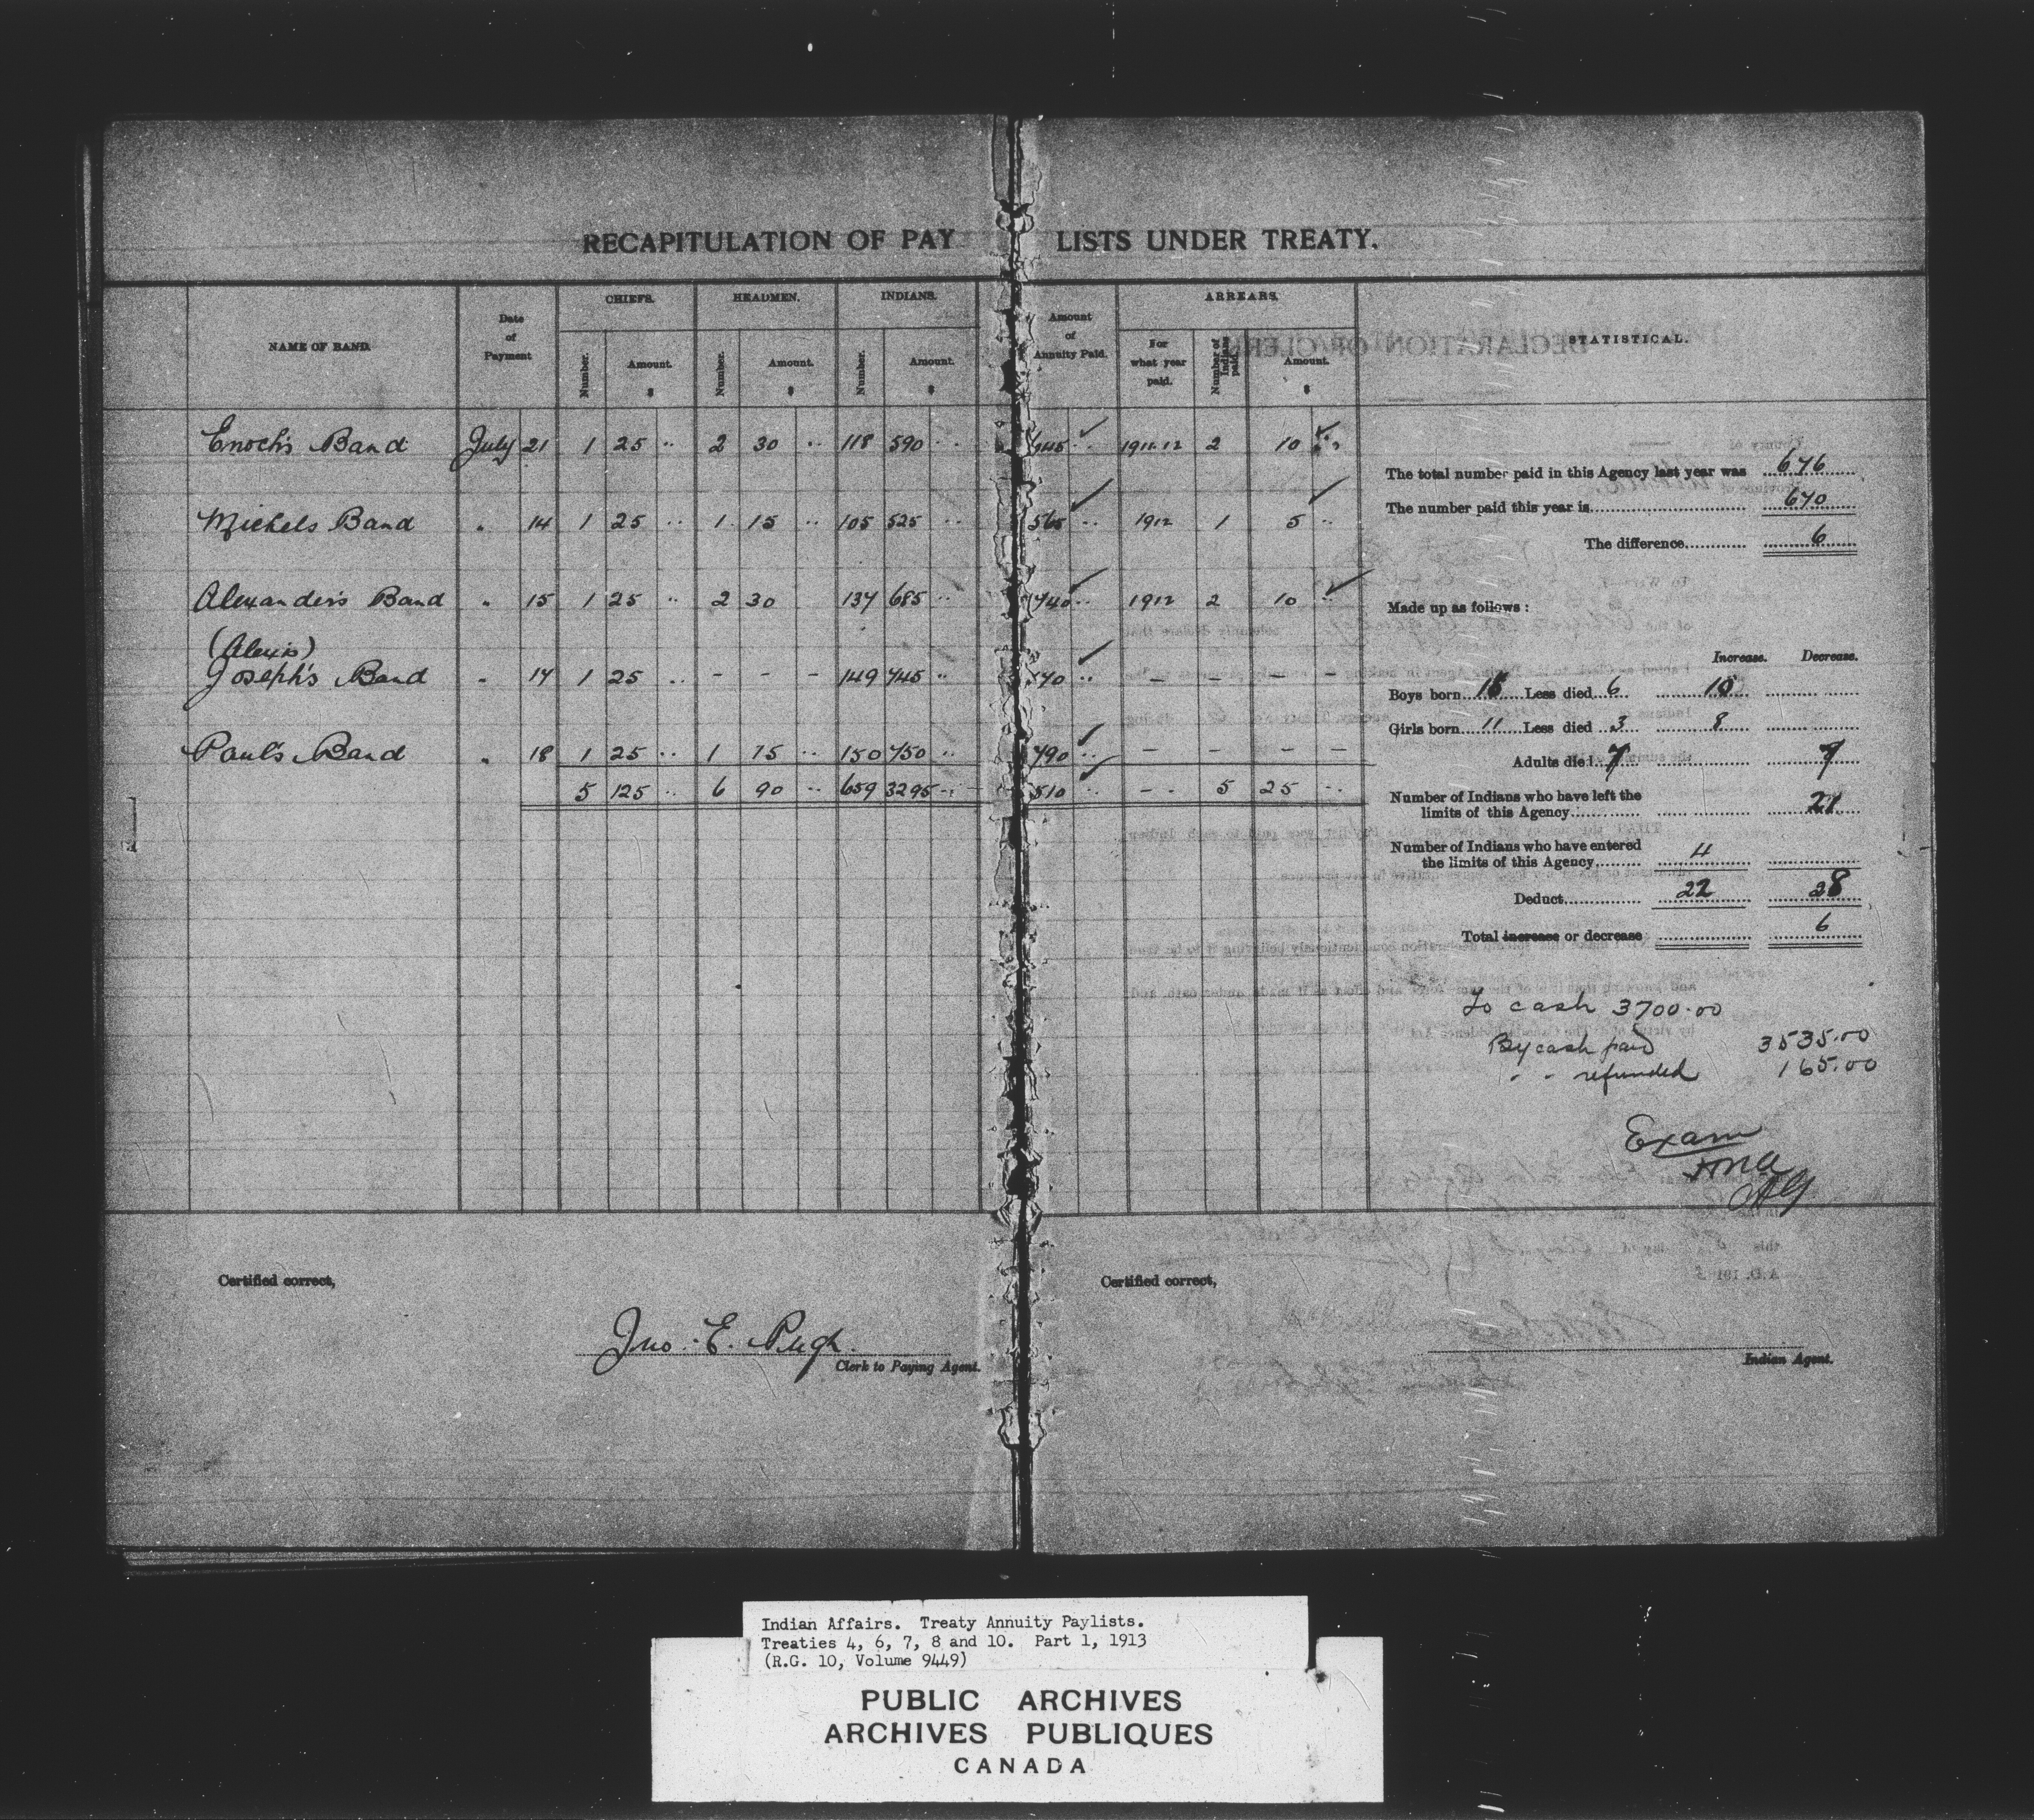 RECAPITULATION OF PAY LISTS UNDER TREATY.
NAME OF BAND. Date of Payment CHIEFS. HEADMEN. INDIANS. Amount of Annuity Paid. ARREARS. STATISTICAL.
Number. Amount. $ Number. Amount. $ Number. Amount. $ For what year paid. Number of Indians paid. Amount. $
Enoch's Band July 21 1 25 .. 2 30 .. 118 590 .. 645 .. 1911-12 2 10 ..
Michels Band " 14 1 25 .. 1 15 .. 105 525 .. 565 .. 1912 1 5 ..
Alexander's Band " 15 1 25 .. 2 30 137 685 .. 740 .. 1912 2 10 ..
(Alexis)
Joseph's Band " 17 1 25 .. - - - 149 745 .. 770 .. - - - -
Paul's Band " 18 1 25 .. 1 15 .. 150 750 .. 790 .. - - - -
5 125 .. 6 90 .. 659 3295 .. 510 .. - - 5 25 ..
The total number paid in this Agency last year was 676
The number paid this year is 670
The difference 6
Made up as follows:
Increase. Decrease.
Boys born 16 Less died 6 10
Girls born 11 Less died 3 8
Adults died 7 7
Number of Indians who have left the
limits of this Agency 21
Number of Indians who have entered
the limits of this Agency 4
Deduct 22 28
Total increase or decrease 6
To cash 3700.00
By cash paid 3535.00
" " refunded 165.00
Exam
Certified correct,
Jno. E. Pugh.
Clerk to Paying Agent.
Certified correct,
Indian Agent.
Indian Affairs. Treaty Annuity Paylists.
Treaties 4, 6, 7, 8 and 10. Part 1, 1913
(R.G. 10, Volume 9449)
PUBLIC ARCHIVES
ARCHIVES PUBLIQUES
CANADA